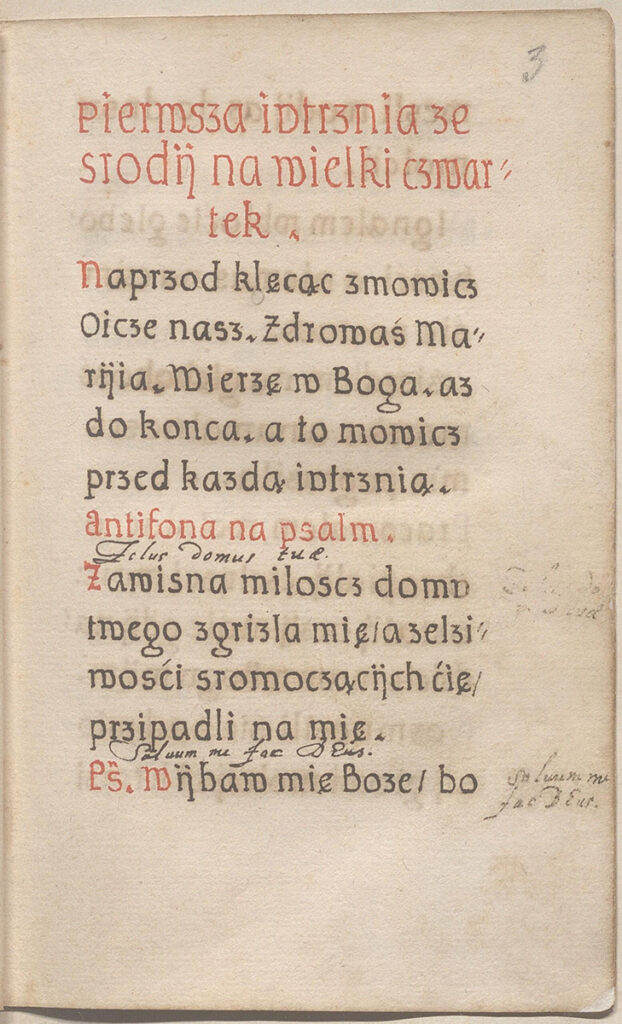 3
pierwsza ivtrznia ze
srodÿ na wielki czwar⸗
tek.
Naprzod klęcąc zmowicz
Oicze nasz. Zdrowaś Ma⸗
rÿia. Wierzę w Boga. az
do konca. a to mowicz
przed kazdą ivtrznią.
Antifona na psalm.
Zelus domus tuæ.
Zawisna miloscz domv
twego zgrizla mię/a zelzi⸗
wości sromoczącÿch cię/
przipadli na mię.
Saluum me fac DEus.
Ps. Wÿbaw mię Boze/ bo
Saluum me
fac DEus.